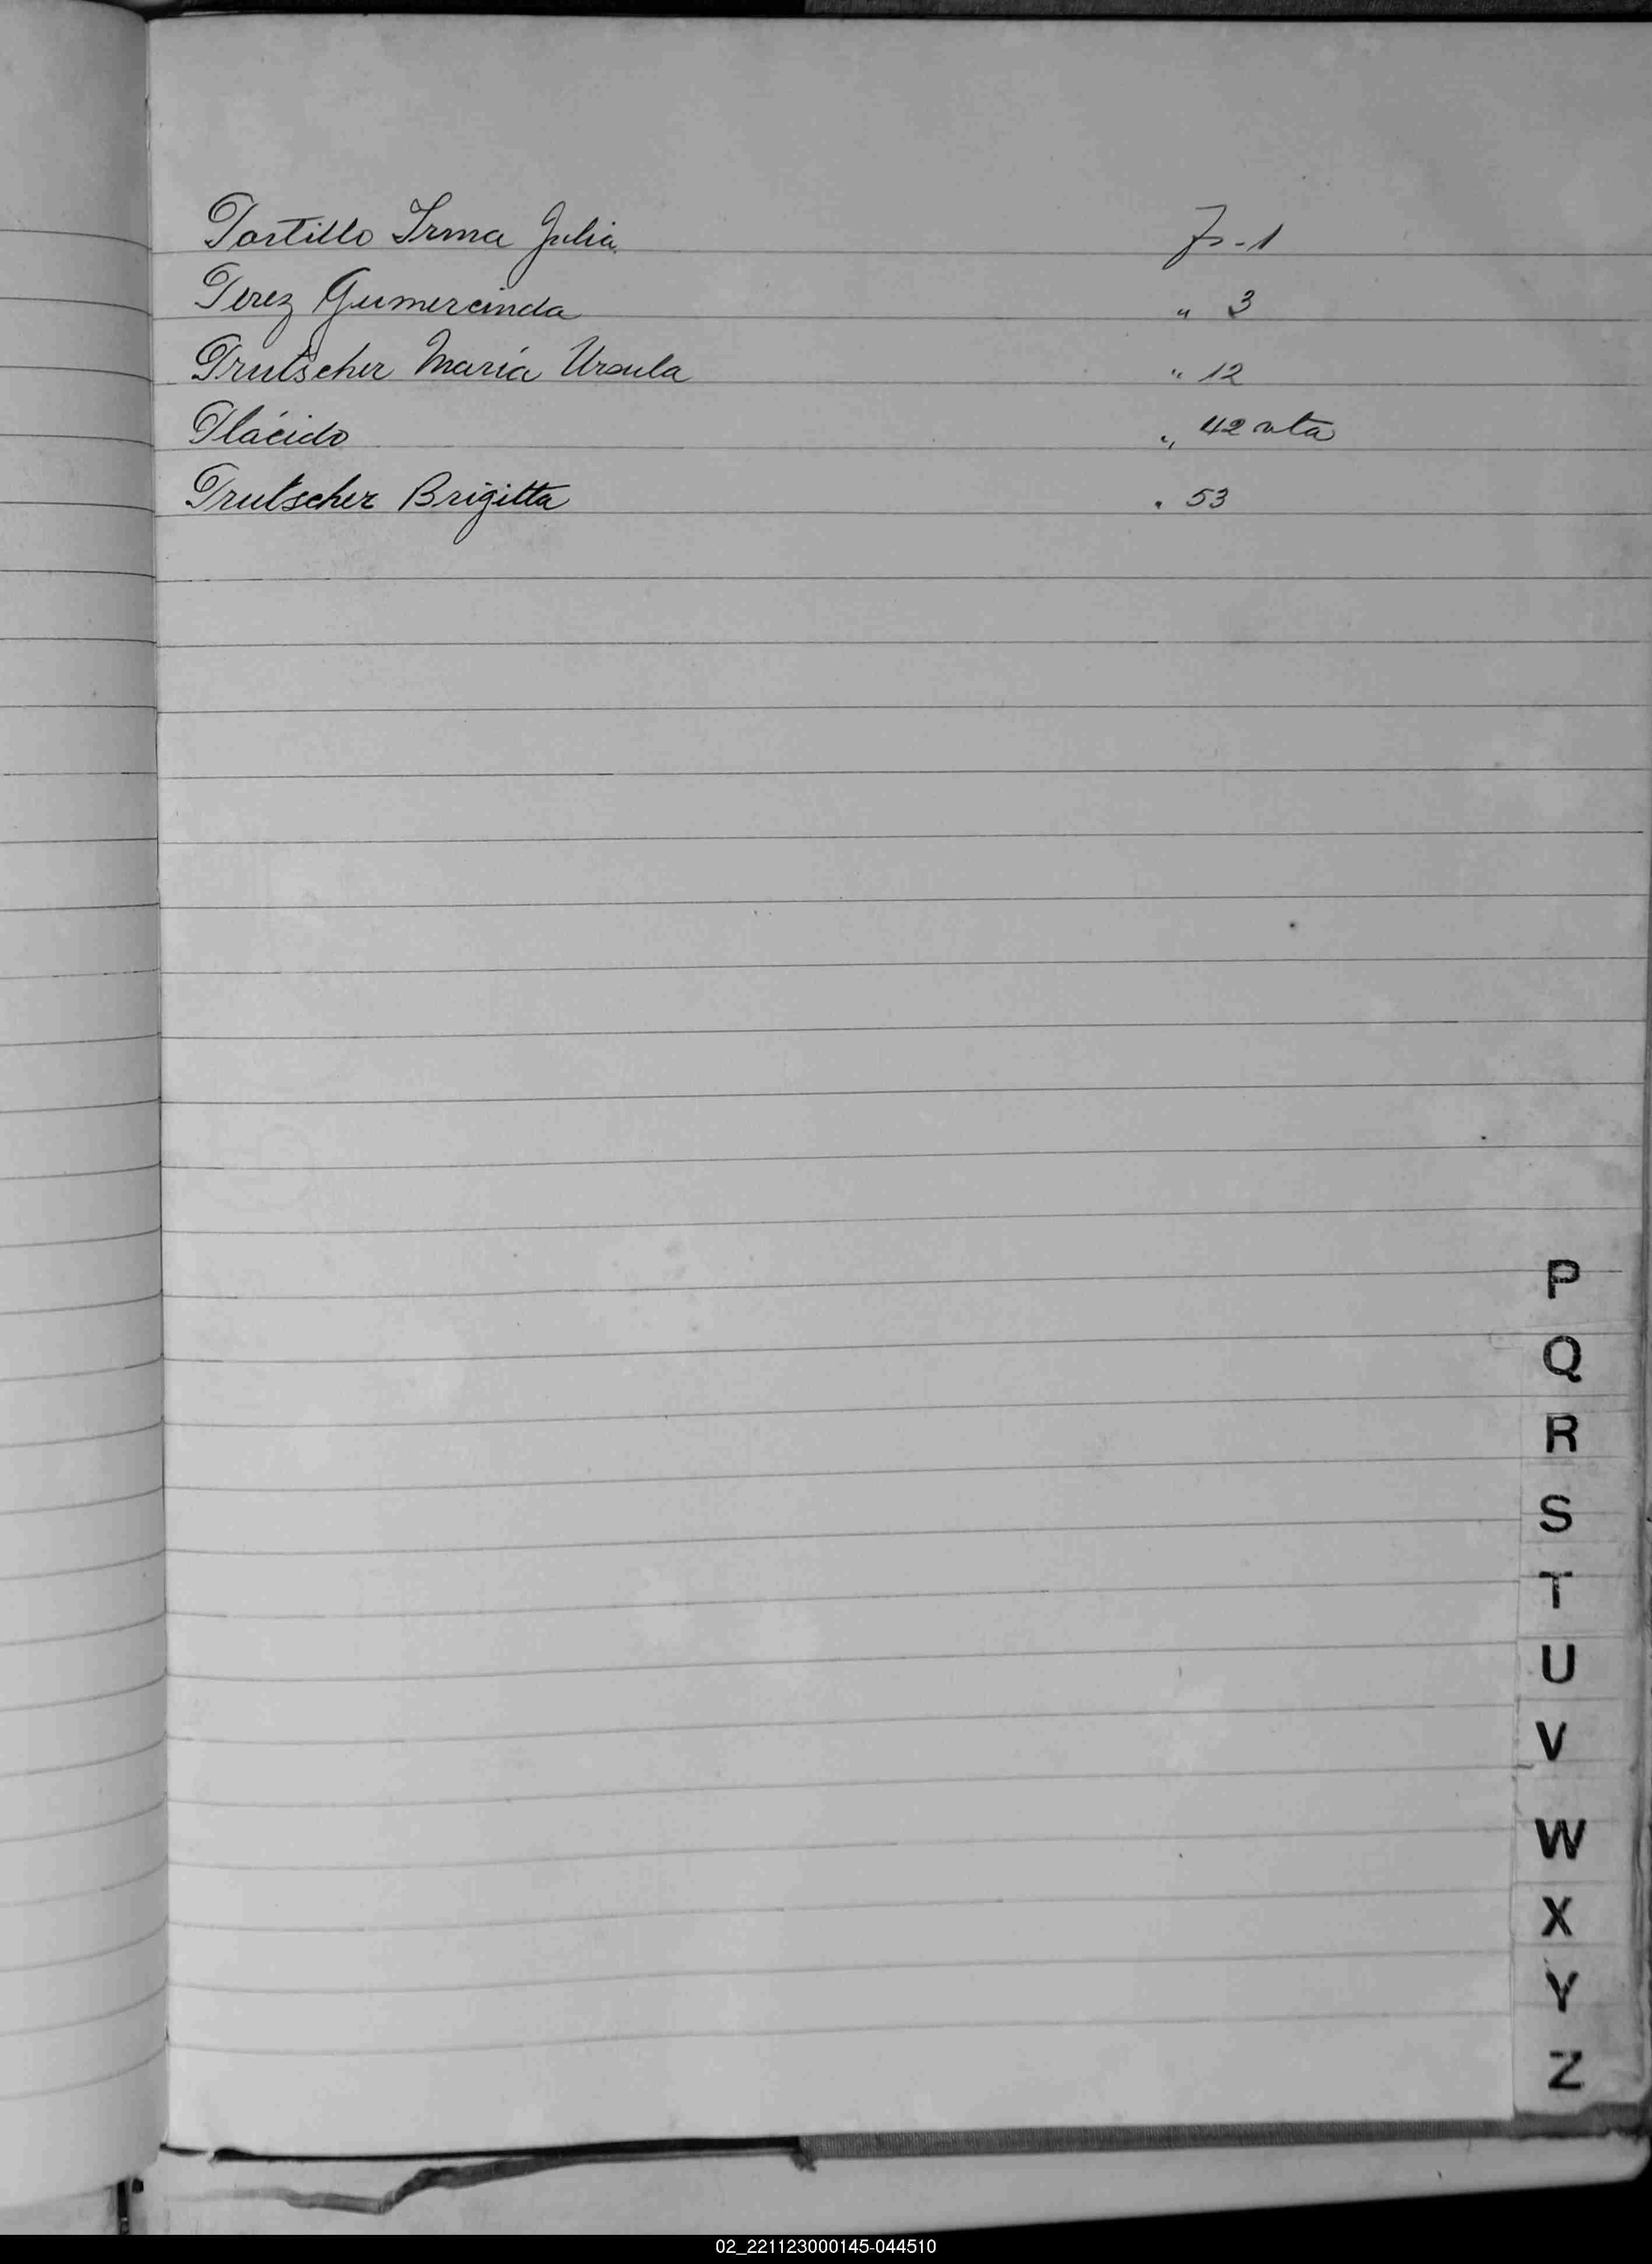 Portillo Irma Julia Fs-1
Perez Gumercinda " 3
Prutscher María Ursula " 12
Plácido " 42 vta
Prutscher Brigitta " 53
P
Q
R
S
T
U
V
W
X
Y
Z
02_221123000145-044510